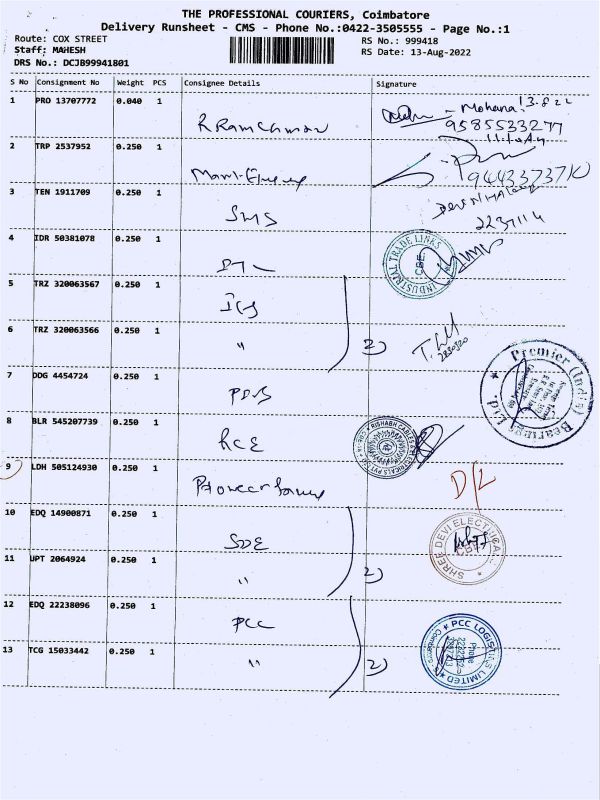 THE PROFESSIONAL COURIERS, Coimbatore
Delivery Runsheet - CMS - Phone No.:0422-3505555 - Page No.:1
Route: COX STREET
RS No.: 999418
Staff: MAHESH
RS Date: 13-Aug-2022
DRS No.: DCJB99941801
S No Consignment No Weight PCS Consignee Details Signature
1 PRO 13707772 0.040 1 Mohana 13.8.22
9585533277
2 TRP 2537952 0.250 1
3 TEN 1911709 0.250 1 SMS
4 IDR 50381078 0.250 1 INDUSTRIAL TRADE LINKS CBE
5 TRZ 320063567 0.250 1
6 TRZ 320063566 0.250 1 " 2)
7 DDG 4454724 0.250 1 Premier (India) Bearings Ltd
8 BLR 545207739 0.250 1 RCE
9 LDH 505124930 0.250 1 D/L
10 EDQ 14900871 0.250 1 SDE SHREE DEVI ELECTRICAL CBE
11 UPT 2064924 0.250 1 " 2)
12 EDQ 22238096 0.250 1 PCC PCC LOGISTICS LIMITED Phone
13 TCG 15033442 0.250 1 " 2)